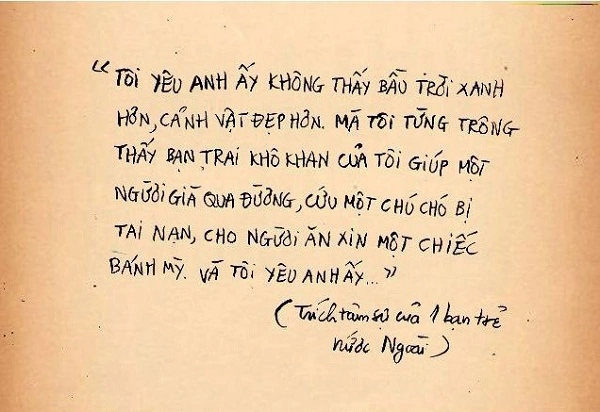 “TÔI YÊU ANH ẤY KHÔNG THẤY BẦU TRỜI XANH
HƠN, CẢNH VẬT ĐẸP HƠN. MÀ TÔI TỪNG TRÔNG
THẤY BẠN TRAI KHÔ KHAN CỦA TÔI GIÚP MỘT
NGƯỜI GIÀ QUA ĐƯỜNG, CỨU MỘT CHÚ CHÓ BỊ
TAI NẠN, CHO NGƯỜI ĂN XIN MỘT CHIẾC
BÁNH MỲ. VÀ TÔI YÊU ANH ẤY...”
(Trích tâm sự của 1 bạn trẻ
nước Ngoài)